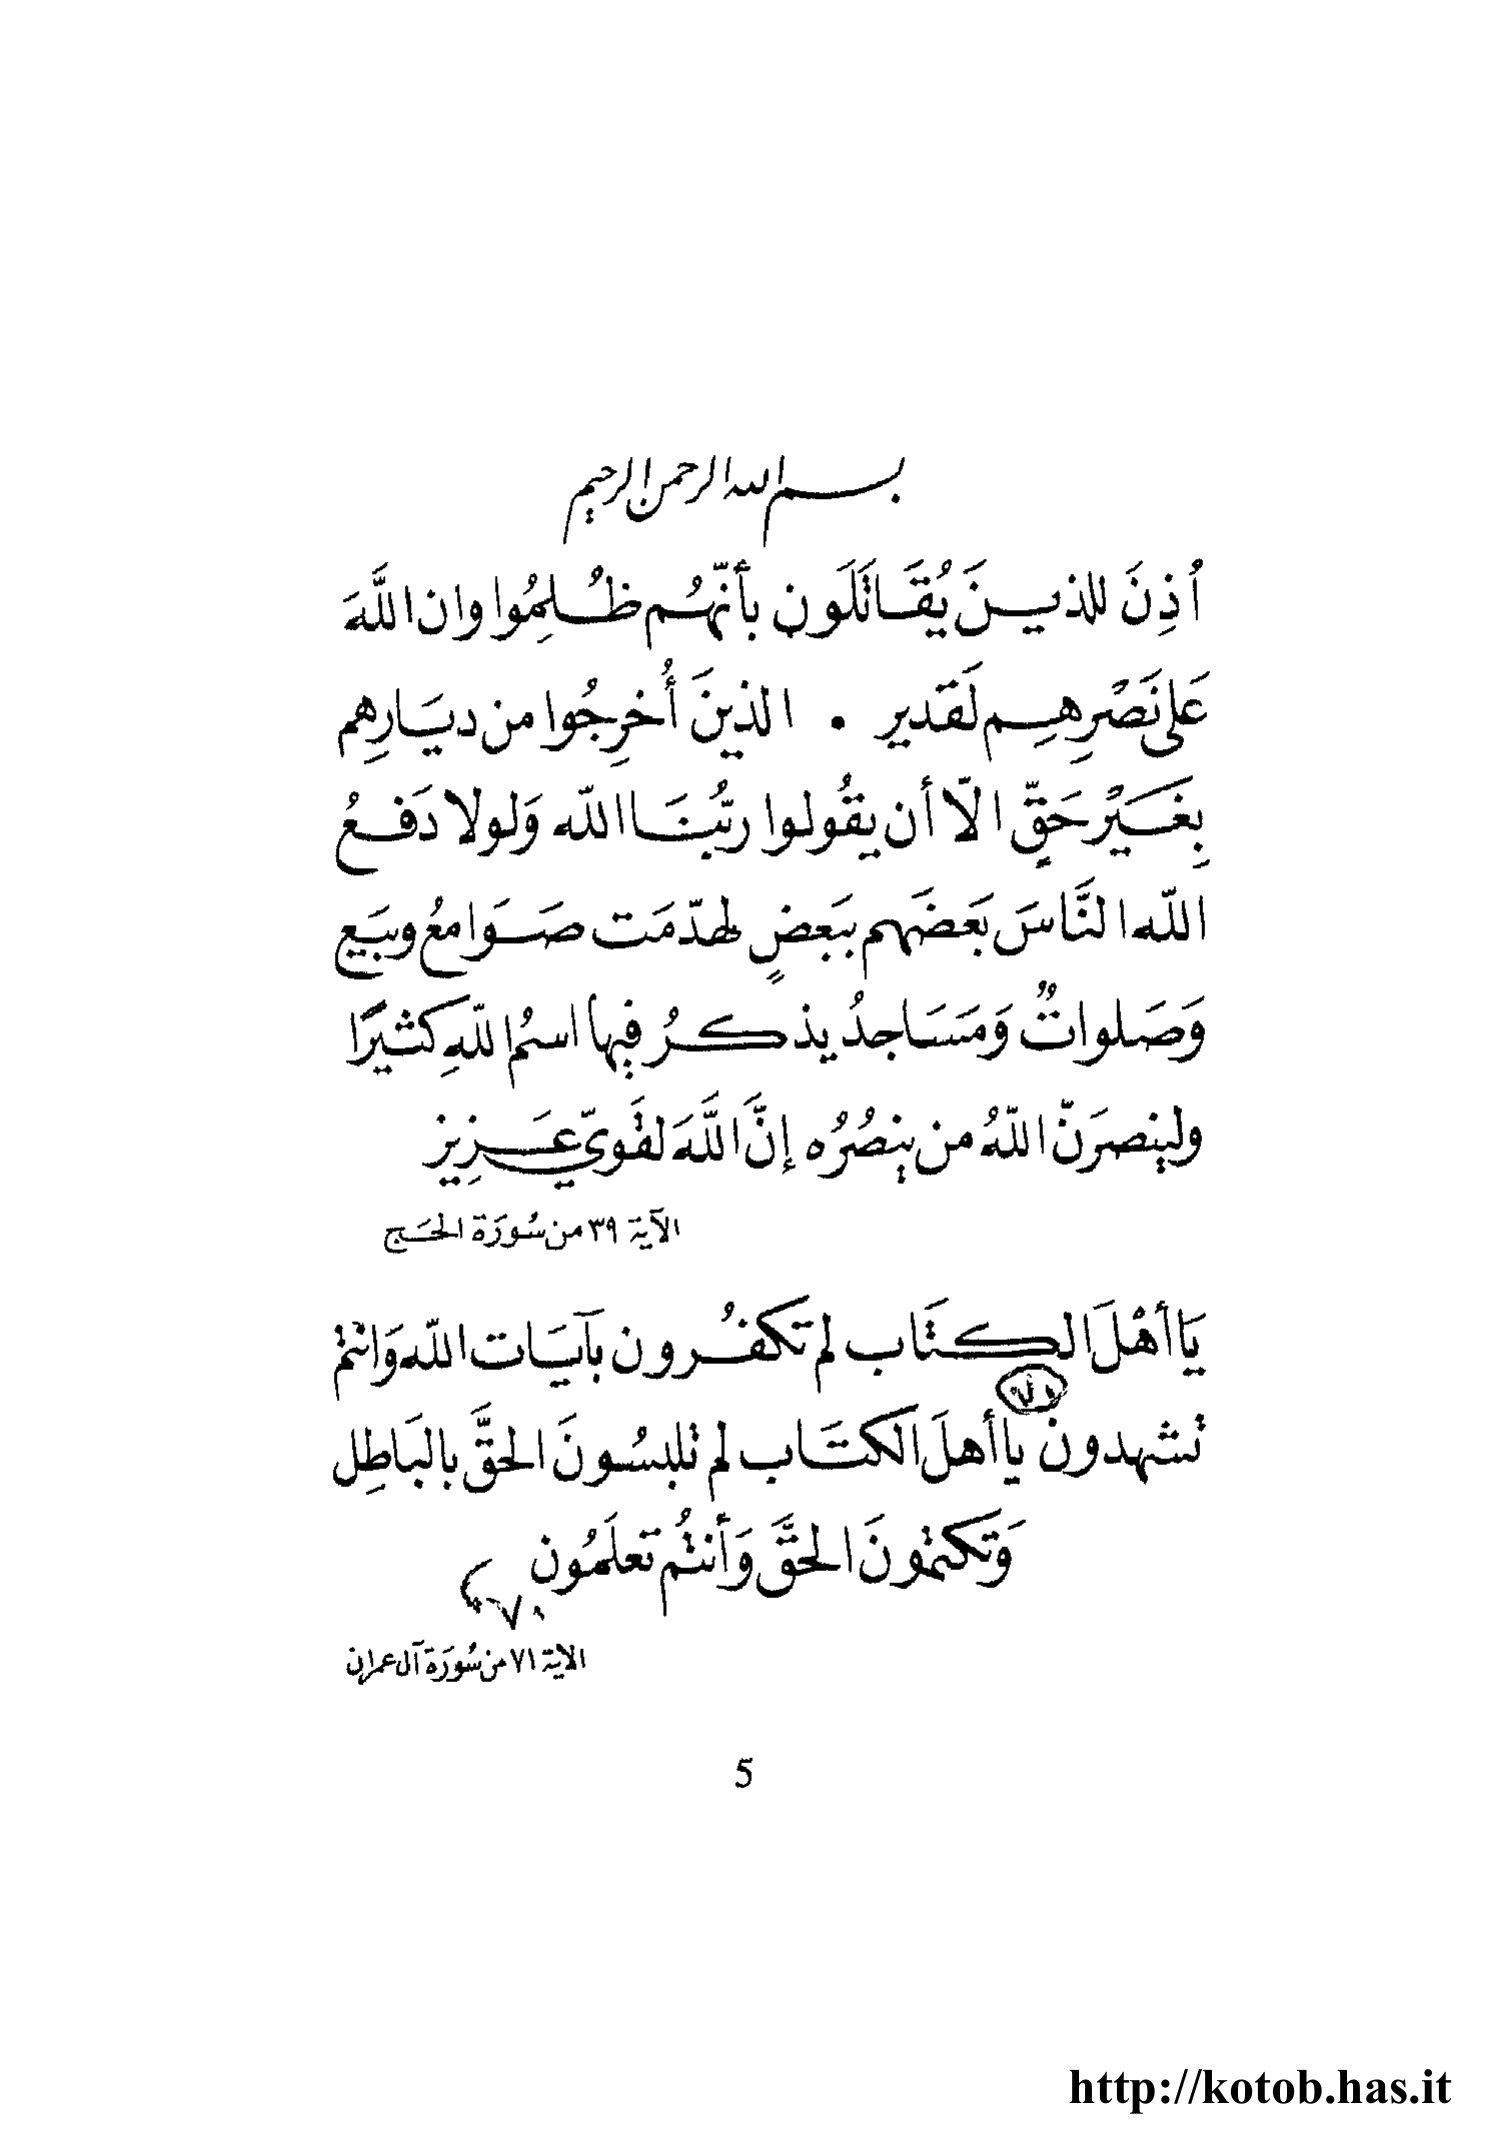 بسم الله الرحمن الرحيم
أُذِنَ للذيـنَ يُقَـاتَلَون بأنّهُـم ظُـلِمُوا وان اللَّهَ
عَلى نَصْرِهِـم لَقَدير . الذينَ أُخرِجُوا من ديـَارِهم
بِغَـيْر حَقٍّ الاّ أن يقُولوا ربُّنـَا اللّه وَلولا دَفـعُ
اللّه النَّاسَ بَعَضَهم ببَعضٍ لهدّمَت صَـوَامعُ وبيَع
وَصَلواتٌ وَمَسَاجدُ يذكـرُ فيها اسمُ اللّهِ كثيرًا
ولينصرَنّ اللّهُ من ينصُرُه إنَّ اللَّهَ لقَويّ عَـزِيز
الآية ٣٩ من سُورَة الحَـج
يَا أهْلَ الـكتَاب لم تكفُـرون بآيَات اللّه وَانتم
٧٠
تشهدون يا أهلَ الكتَاب لم تلبسُونَ الحقَّ بالبَاطِل
وَتكتمونَ الحقَّ وَأنتُم تعلَمُون
٧٠
الاية ٧١ من سُورَة آل عمران
5
http://kotob.has.it